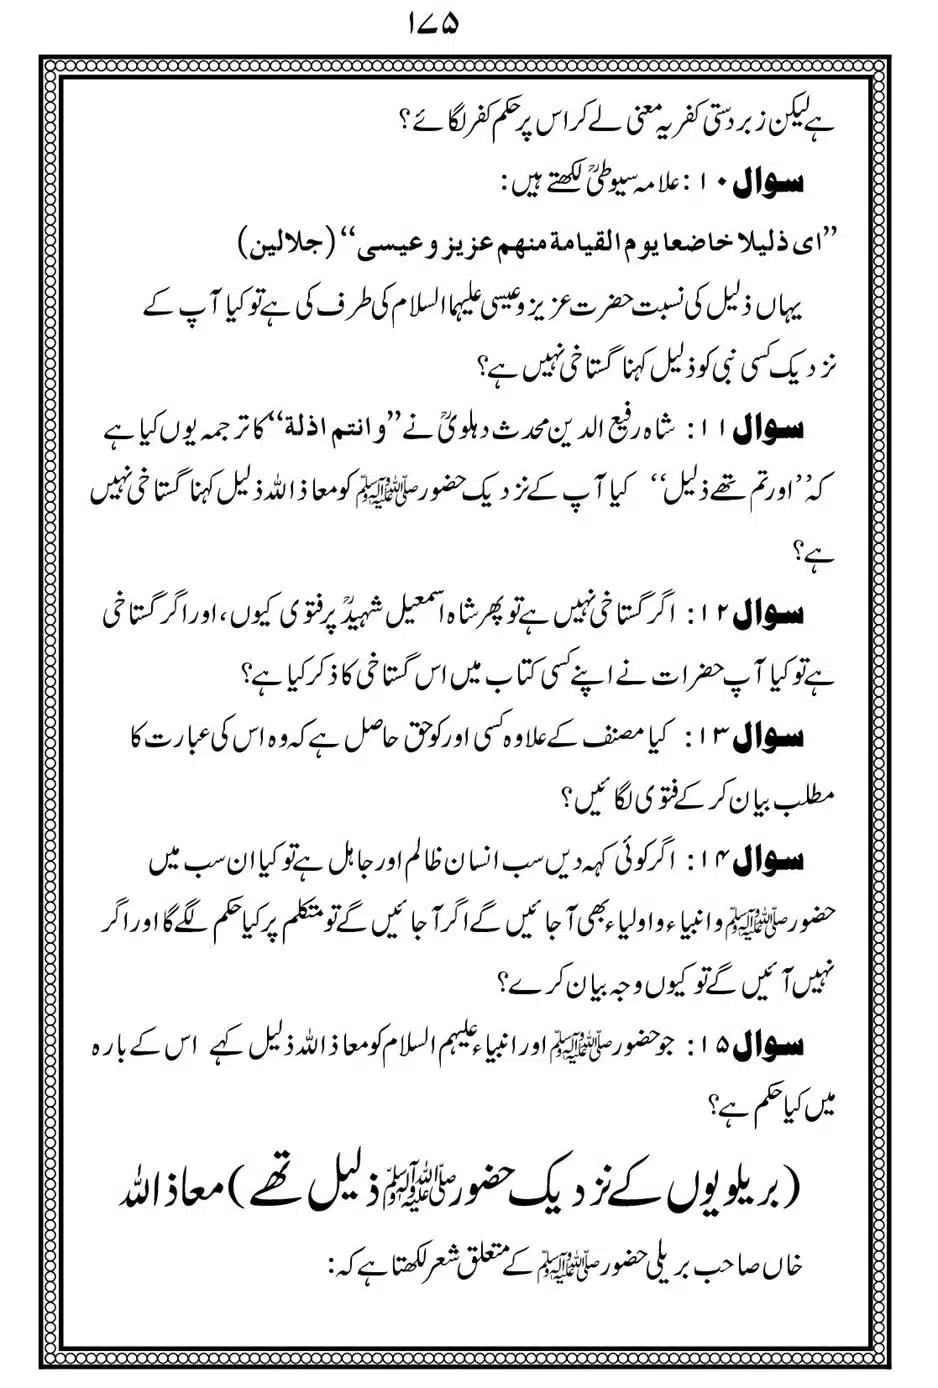 ۱۷۵
ہے لیکن زبردستی کفریہ معنی لے کر اس پر حکم کفر لگائے؟
سوال ۱۰: علامہ سیوطیؒ لکھتے ہیں:
”ای ذلیلا خاضعا یوم القیامة منھم عزیز و عیسی“ (جلالین)
یہاں ذلیل کی نسبت حضرت عزیز و عیسی علیہما السلام کی طرف کی ہے تو کیا آپ کے
نزدیک کسی نبی کو ذلیل کہنا گستاخی نہیں ہے؟
سوال ۱۱: شاہ رفیع الدین محدث دہلویؒ نے ”و انتم اذلة“ کا ترجمہ یوں کیا ہے
کہ ”اور تم تھے ذلیل“ کیا آپ کے نزدیک حضور ﷺ کو معاذ اللہ ذلیل کہنا گستاخی نہیں
ہے؟
سوال ۱۲: اگر گستاخی نہیں ہے تو پھر شاہ اسمعیل شہیدؒ پر فتوی کیوں، اور اگر گستاخی
ہے تو کیا آپ حضرات نے اپنے کسی کتاب میں اس گستاخی کا ذکر کیا ہے؟
سوال ۱۳: کیا مصنف کے علاوہ کسی اور کو حق حاصل ہے کہ وہ اس کی عبارت کا
مطلب بیان کر کے فتوی لگائیں؟
سوال ۱۴: اگر کوئی کہہ دیں سب انسان ظالم اور جاہل ہے تو کیا ان سب میں
حضور ﷺ و انبیاء و اولیاء بھی آ جائیں گے اگر آ جائیں گے تو متکلم پر کیا حکم لگے گا اور اگر
نہیں آئیں گے تو کیوں وجہ بیان کرے؟
سوال ۱۵: جو حضور ﷺ اور انبیاء علیہم السلام کو معاذ اللہ ذلیل کہے اس کے بارہ
میں کیا حکم ہے؟
(بریلویوں کے نزدیک حضور ﷺ ذلیل تھے) معاذ اللہ
خاں صاحب بریلی حضور ﷺ کے متعلق شعر لکھتا ہے کہ: